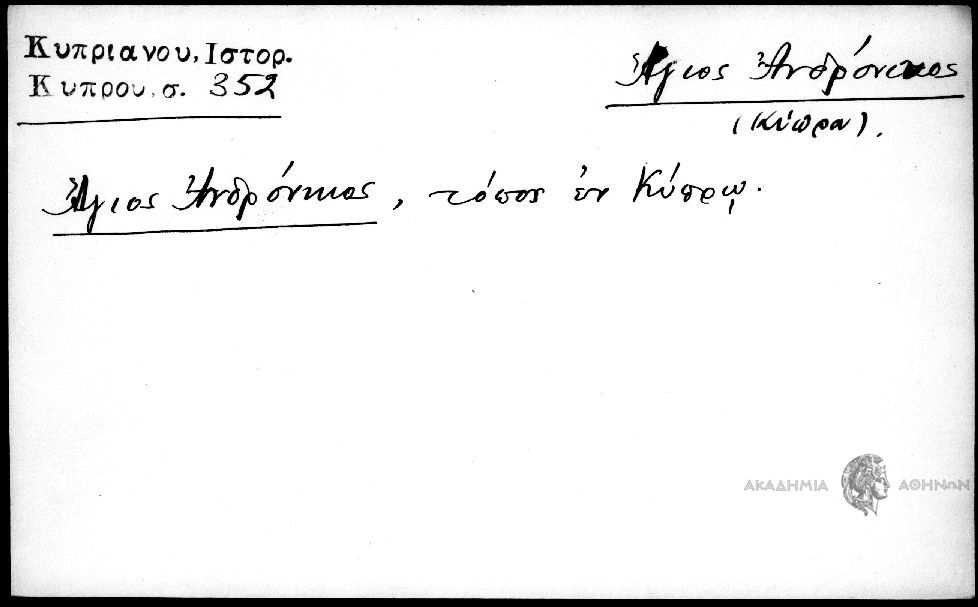 Κυπριανου, Ιστορ.
Κυπρου, σ. 352
Ἅγιος Ἀνδρόνικος
(Κύπρα).
Ἅγιος Ἀνδρόνικος, τόπος ἐν Κύπρῳ.
ΑΚΑΔΗΜΙΑ ΑΘΗΝΩΝ